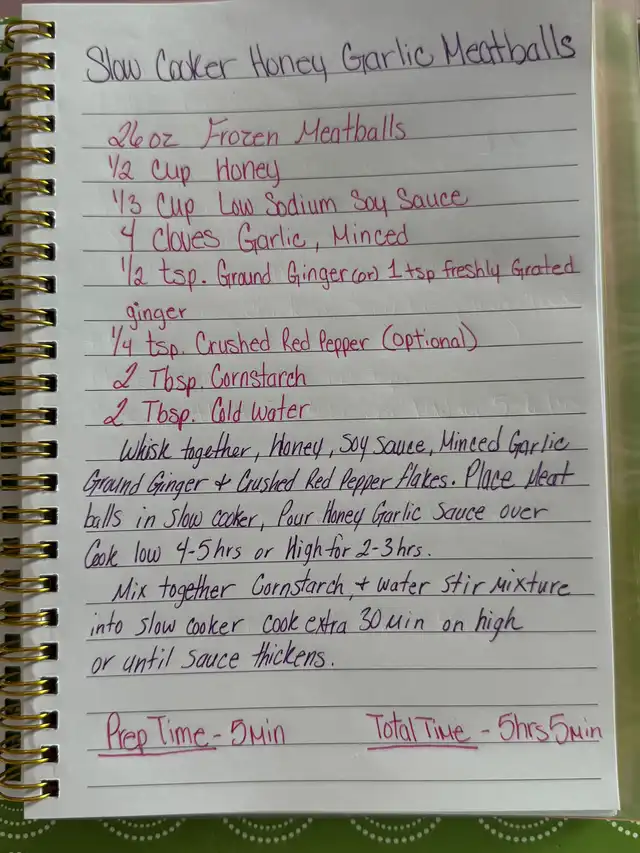 Slow Cooker Honey Garlic Meatballs
26 oz Frozen Meatballs
1/2 Cup Honey
1/3 Cup Low Sodium Soy Sauce
4 Cloves Garlic, Minced
1/2 tsp. Ground Ginger (or) 1 tsp freshly Grated
ginger
1/4 tsp. Crushed Red Pepper (optional)
2 Tbsp. Cornstarch
2 Tbsp. Cold Water
Whisk together, Honey, Soy Sauce, Minced Garlic
Ground Ginger + Crushed Red Pepper flakes. Place Meat
balls in slow cooker, Pour Honey Garlic Sauce over
Cook low 4-5hrs or High for 2-3hrs.
Mix together Cornstarch, + water stir mixture
into slow cooker cook extra 30 min on high
or until sauce thickens.
Prep Time - 5 Min Total Time - 5hrs 5min